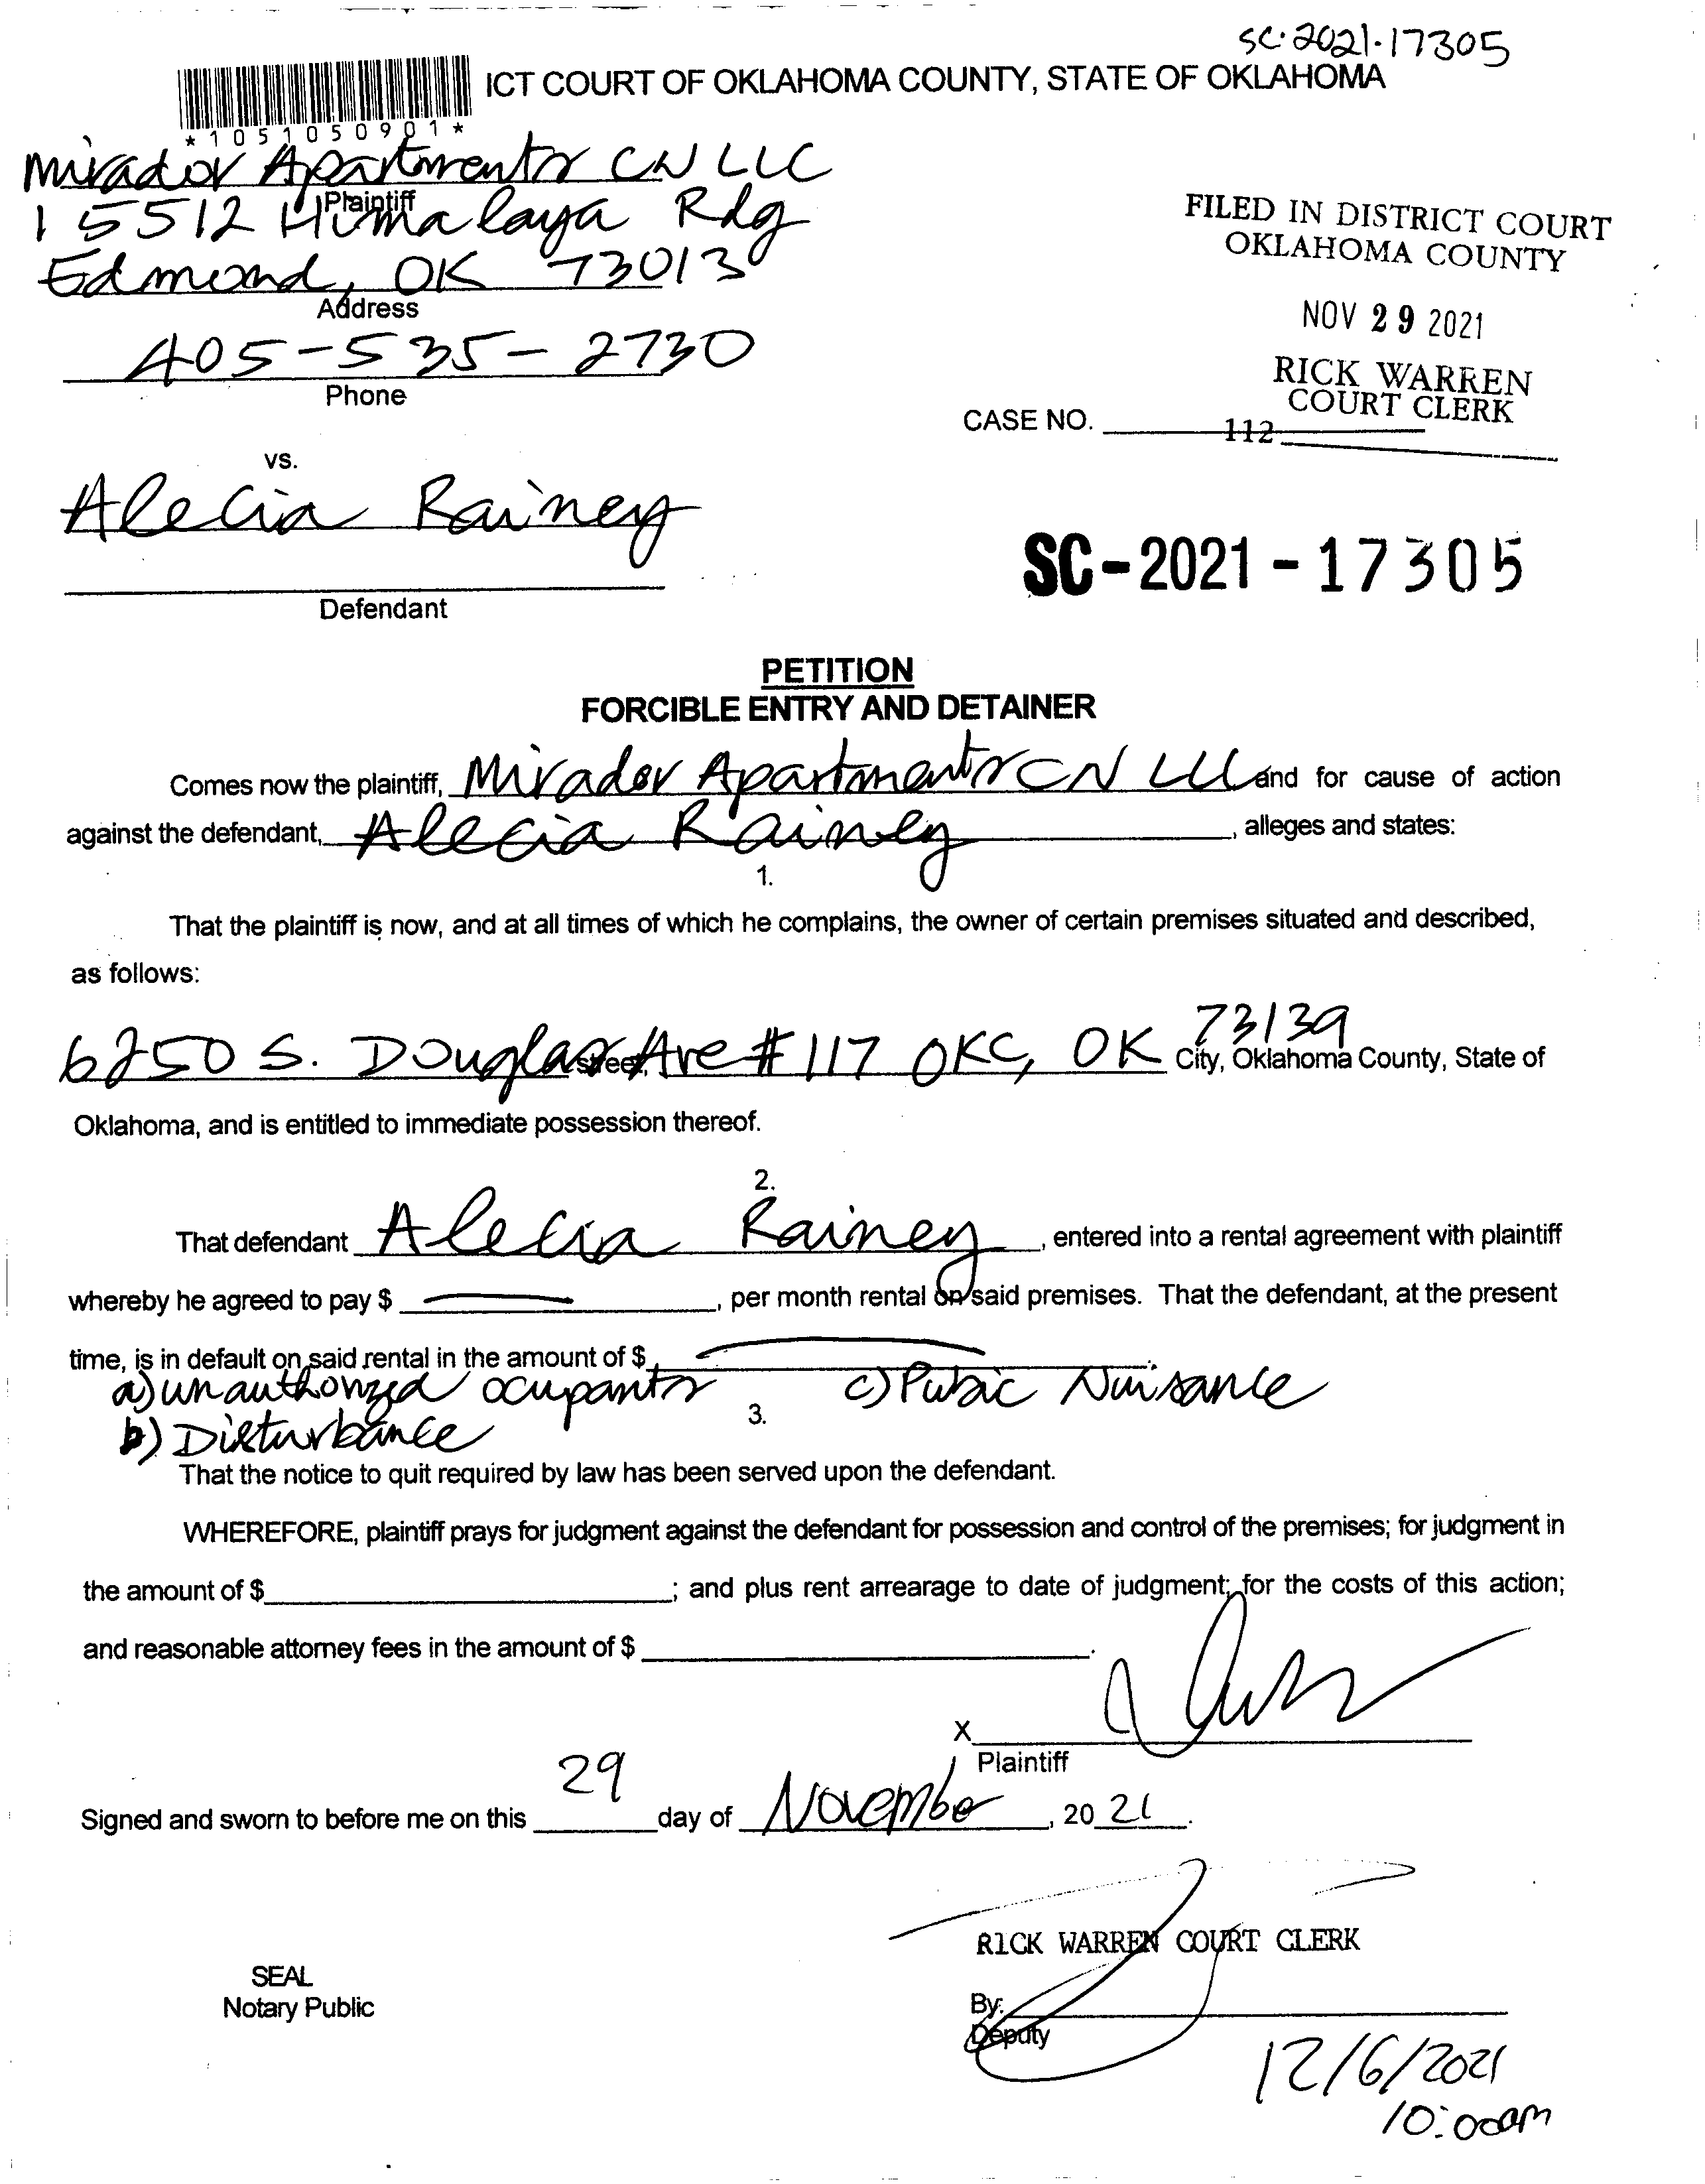 SC-2021-17305
ICT COURT OF OKLAHOMA COUNTY, STATE OF OKLAHOMA
*1051050901*
Mirador Apartments CN LLC
Plaintiff
15512 Himalaya Rdg
Edmond, OK 73013
Address
405-535-2730
Phone
FILED IN DISTRICT COURT
OKLAHOMA COUNTY
NOV 29 2021
RICK WARREN
COURT CLERK
CASE NO.
112
vs.
Alecia Rainey
Defendant
SC-2021-17305
PETITION
FORCIBLE ENTRY AND DETAINER
Comes now the plaintiff, Mirador Apartments CN LLC and for cause of action
against the defendant, Alecia Rainey, alleges and states:
1.
That the plaintiff is now, and at all times of which he complains, the owner of certain premises situated and described,
as follows:
73139
6250 S. Douglas Ave #117 OKC, OK street, City, Oklahoma County, State of
Oklahoma, and is entitled to immediate possession thereof.
2.
That defendant Alecia Rainey, entered into a rental agreement with plaintiff
whereby he agreed to pay $ —, per month rental on said premises. That the defendant, at the present
time, is in default on said rental in the amount of $ —.
a) unauthorized ocupants c) Pubic Nuisance
3.
b) Disturbance
That the notice to quit required by law has been served upon the defendant.
WHEREFORE, plaintiff prays for judgment against the defendant for possession and control of the premises; for judgment in
the amount of $ ; and plus rent arrearage to date of judgment; for the costs of this action;
and reasonable attorney fees in the amount of $ .
X
Plaintiff
Signed and sworn to before me on this 29 day of November, 2021.
RICK WARREN COURT CLERK
SEAL
Notary Public
By:
Deputy
12/6/2021
10:00am